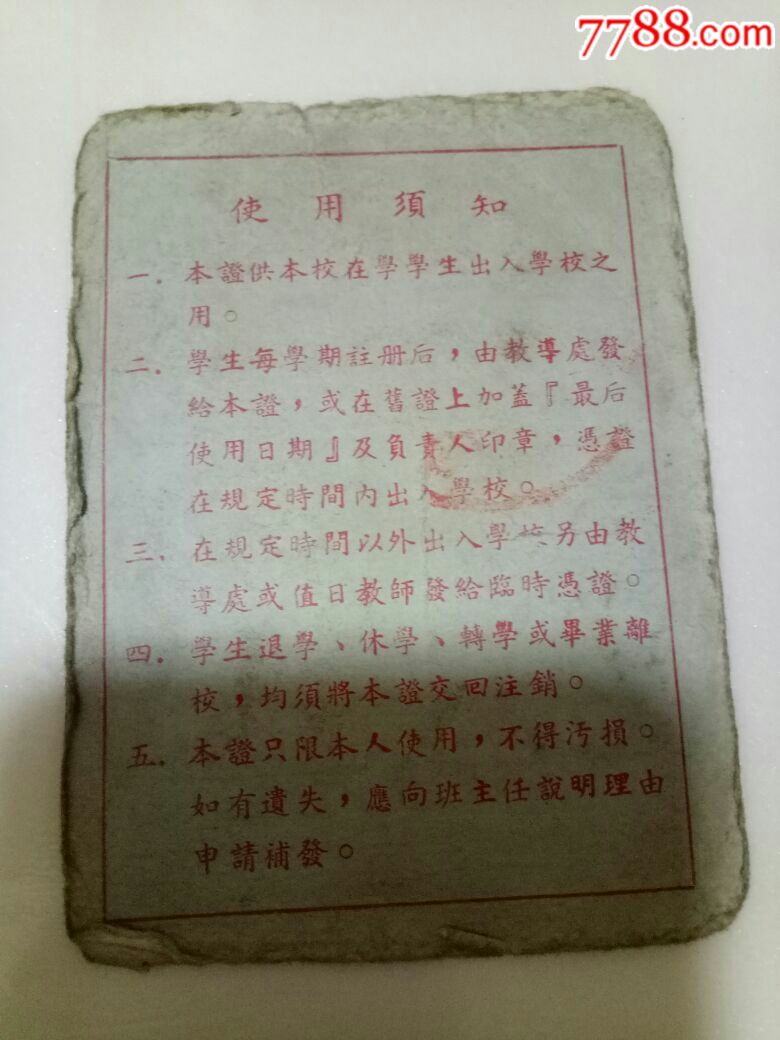 7788.com
使用須知
一．本證供本校在學學生出入學校之
用。
二．學生每學期註册后，由教導處發
給本證，或在舊證上加蓋『最后
使用日期』及負責人印章，憑證
在規定時間內出入學校。
三．在規定時間以外出入學校另由教
導處或值日教師發給臨時憑證。
四．學生退學、休學、轉學或畢業離
校，均須將本證交回注銷。
五．本證只限本人使用，不得汚損。
如有遺失，應向班主任說明理由
申請補發。